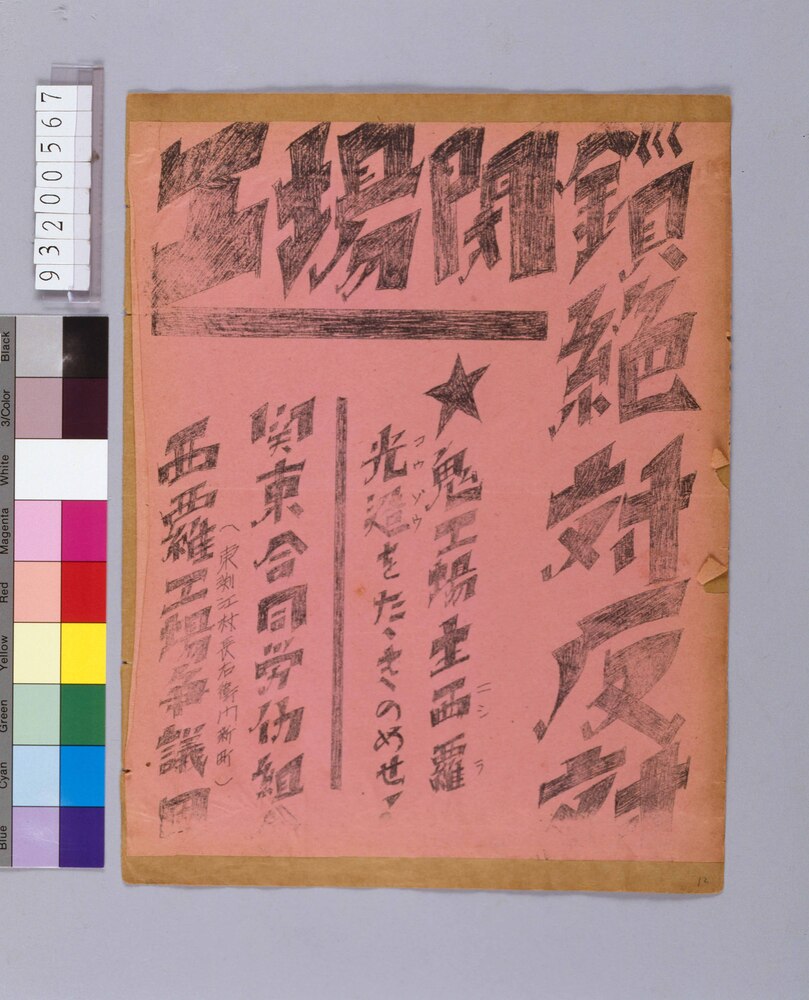 工場閉鎖
絶対反対
★鬼工場主西羅
ニシラ
光造をたゝきのめせ！
コウゾウ
関東合同労仂組
(東渕江村長右衛門新町)
西羅工場争議団
93200567
Black
3/Color
White
Magenta
Red
Yellow
Green
Cyan
Blue
12